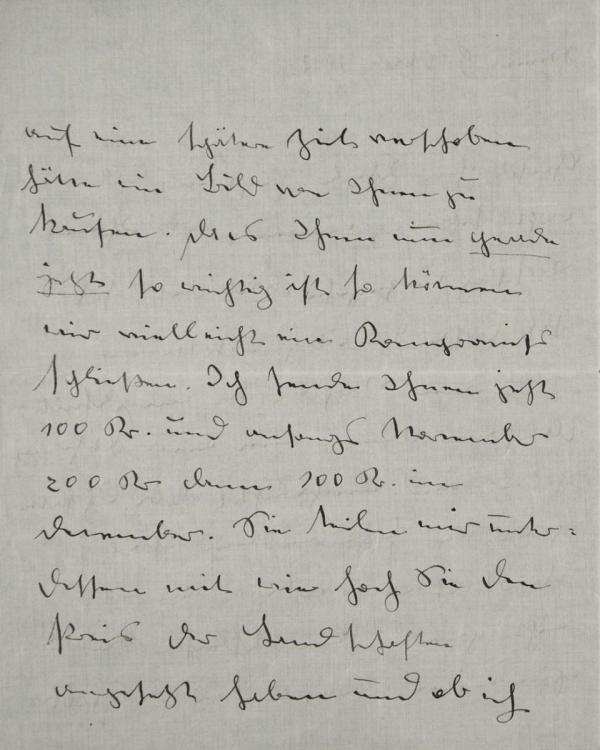 auf eine spätere Zeit verschoben
hätte ein Bild von Ihnen zu
kaufen. Da es Ihnen nun gerade
jetzt so wichtig ist so können
wir vielleicht ein Kompromiss
schließen. Ich sende Ihnen jetzt
100 Kr. und anfangs November
200 Kr dann 100 Kr. im
Dezember. Sie teilen mir unter=
dessen mit wie hoch Sie den
Preis der Landschaften
angesetzt haben und ob ich